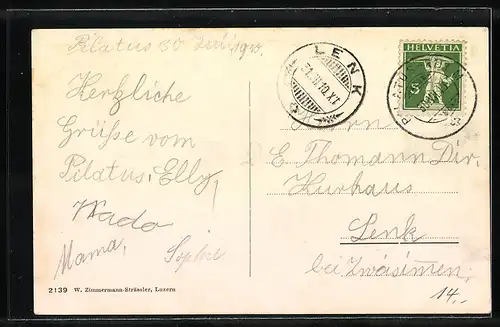 Pilatus 30 Juli 1910.
Herzliche
Grüße vom
Pilatus, Elly,
Wado
Mama, Sophie
2139 W. Zimmermann-Strässler, Luzern
LENK
31.VII.10.XI
HELVETIA
5
PILATUS
Herrn
E. Thomann Dir.
Kurhaus
Lenk
bei Zwäsimen
14.-